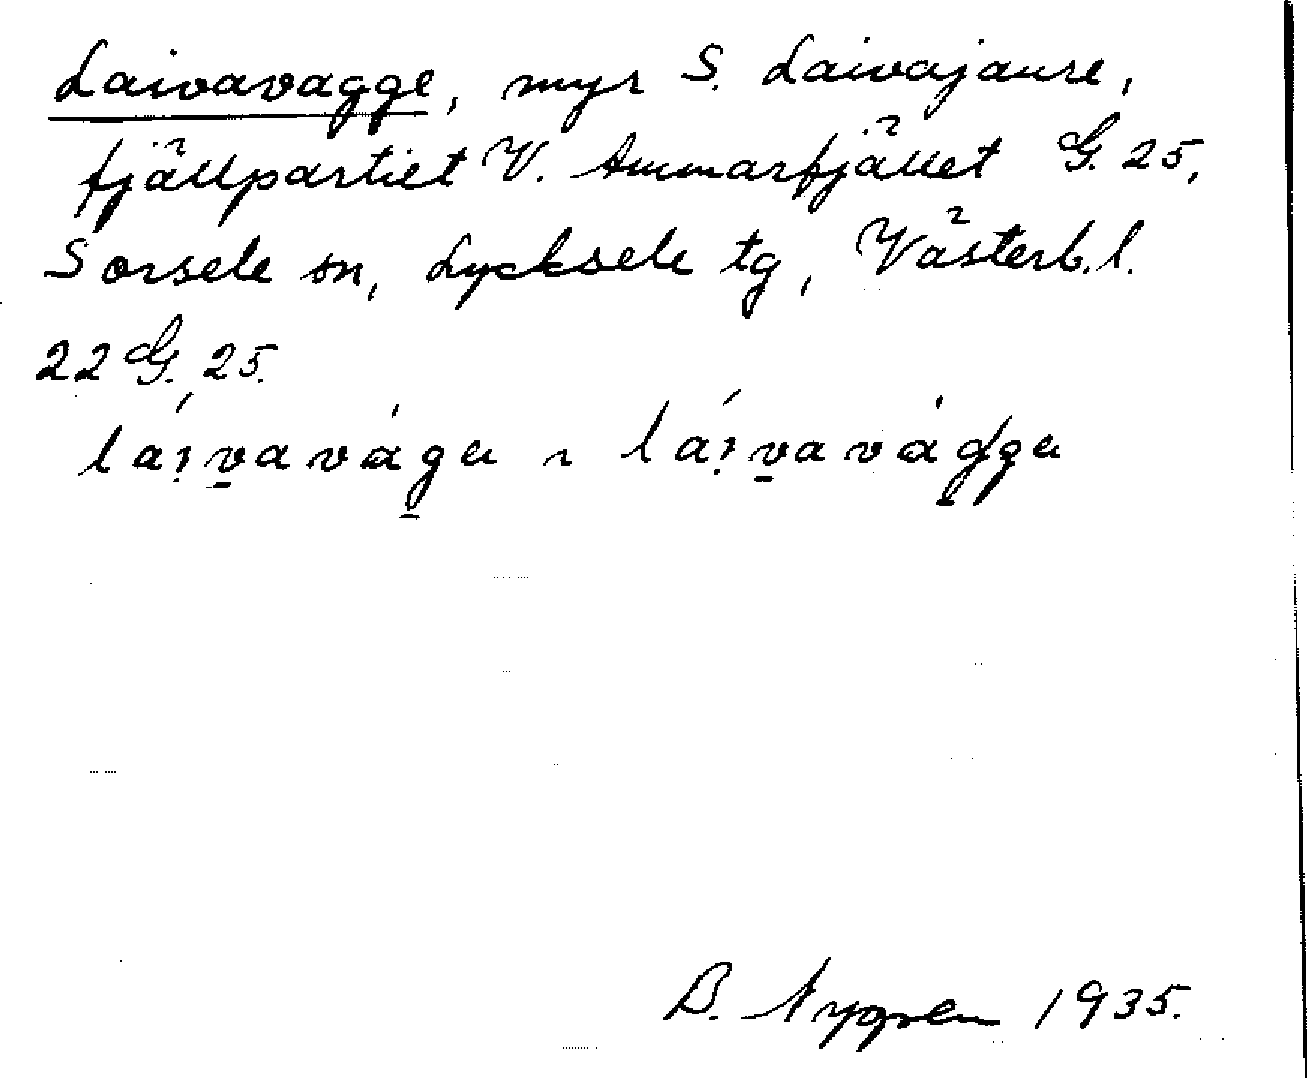 Laivavagge, myr S. Laivajaure,
fjällpartiet V. Ammarfjället G. 25,
Sorsele sn, Lycksele tg, Västerb. l.
22 G. 25.
láı̣v̱avág̱ɐ ~ láı̣v̱avág̱gɐ
B. Nygren 1935.